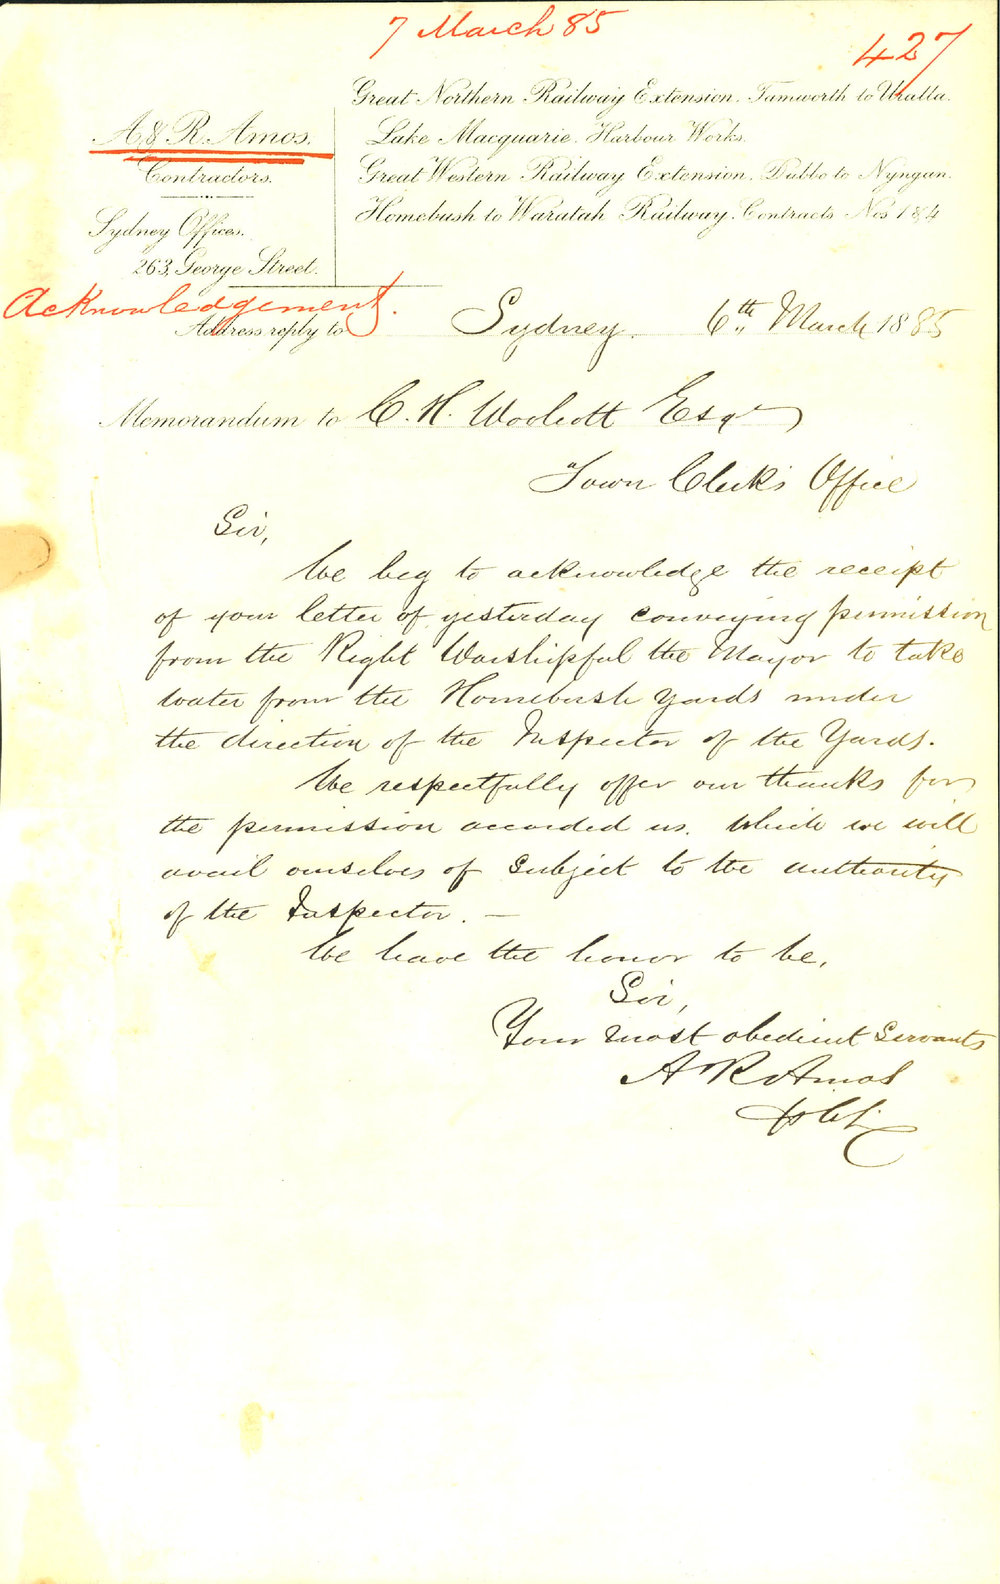 7 March 85
427
Great Northern Railway Extension. Tamworth to Uralla.
Lake Macquarie. Harbour Works.
Great Western Railway Extension. Dubbo to Nyngan.
Homebush to Waratah Railway. Contracts Nos 1 & 4
A. & R. Amos.
Contractors.
Sydney Offices.
263, George Street.
Acknowledgement.
Address reply to
Sydney. 6th March 1885
Memorandum to C. H. Woolcott Esqr
Town Clerk's Office
Sir,
We beg to acknowledge the receipt
of your letter of yesterday conveying permission
from the Right Worshipful the Mayor to take
water from the Homebush yards under
the direction of the Inspector of the Yards.
We respectfully offer our thanks for
the permission accorded us. Which we will
avail ourselves of subject to the authority
of the Inspector. —
We have the honor to be,
Sir,
Your most obedient Servants
A R Amos